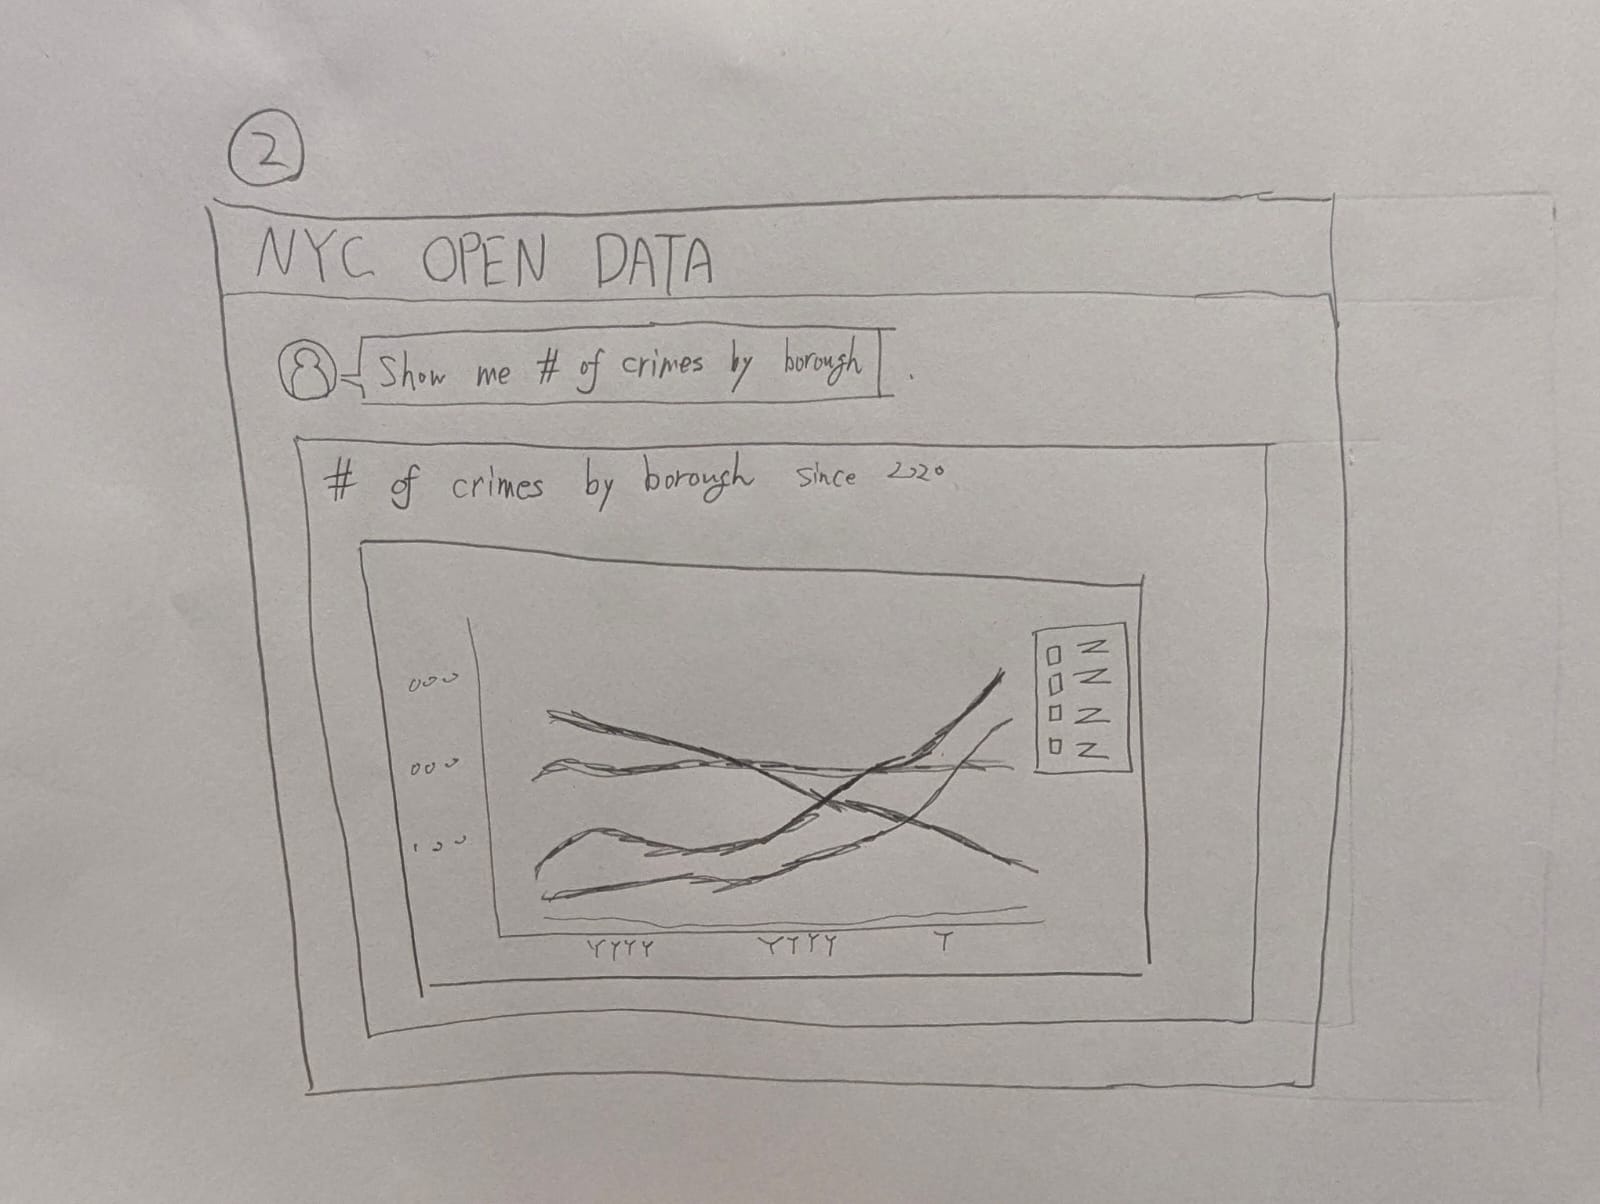 2
NYC OPEN DATA
Show me # of crimes by borough
# of crimes by borough since 2020
000
000
YYYY YYYY Y